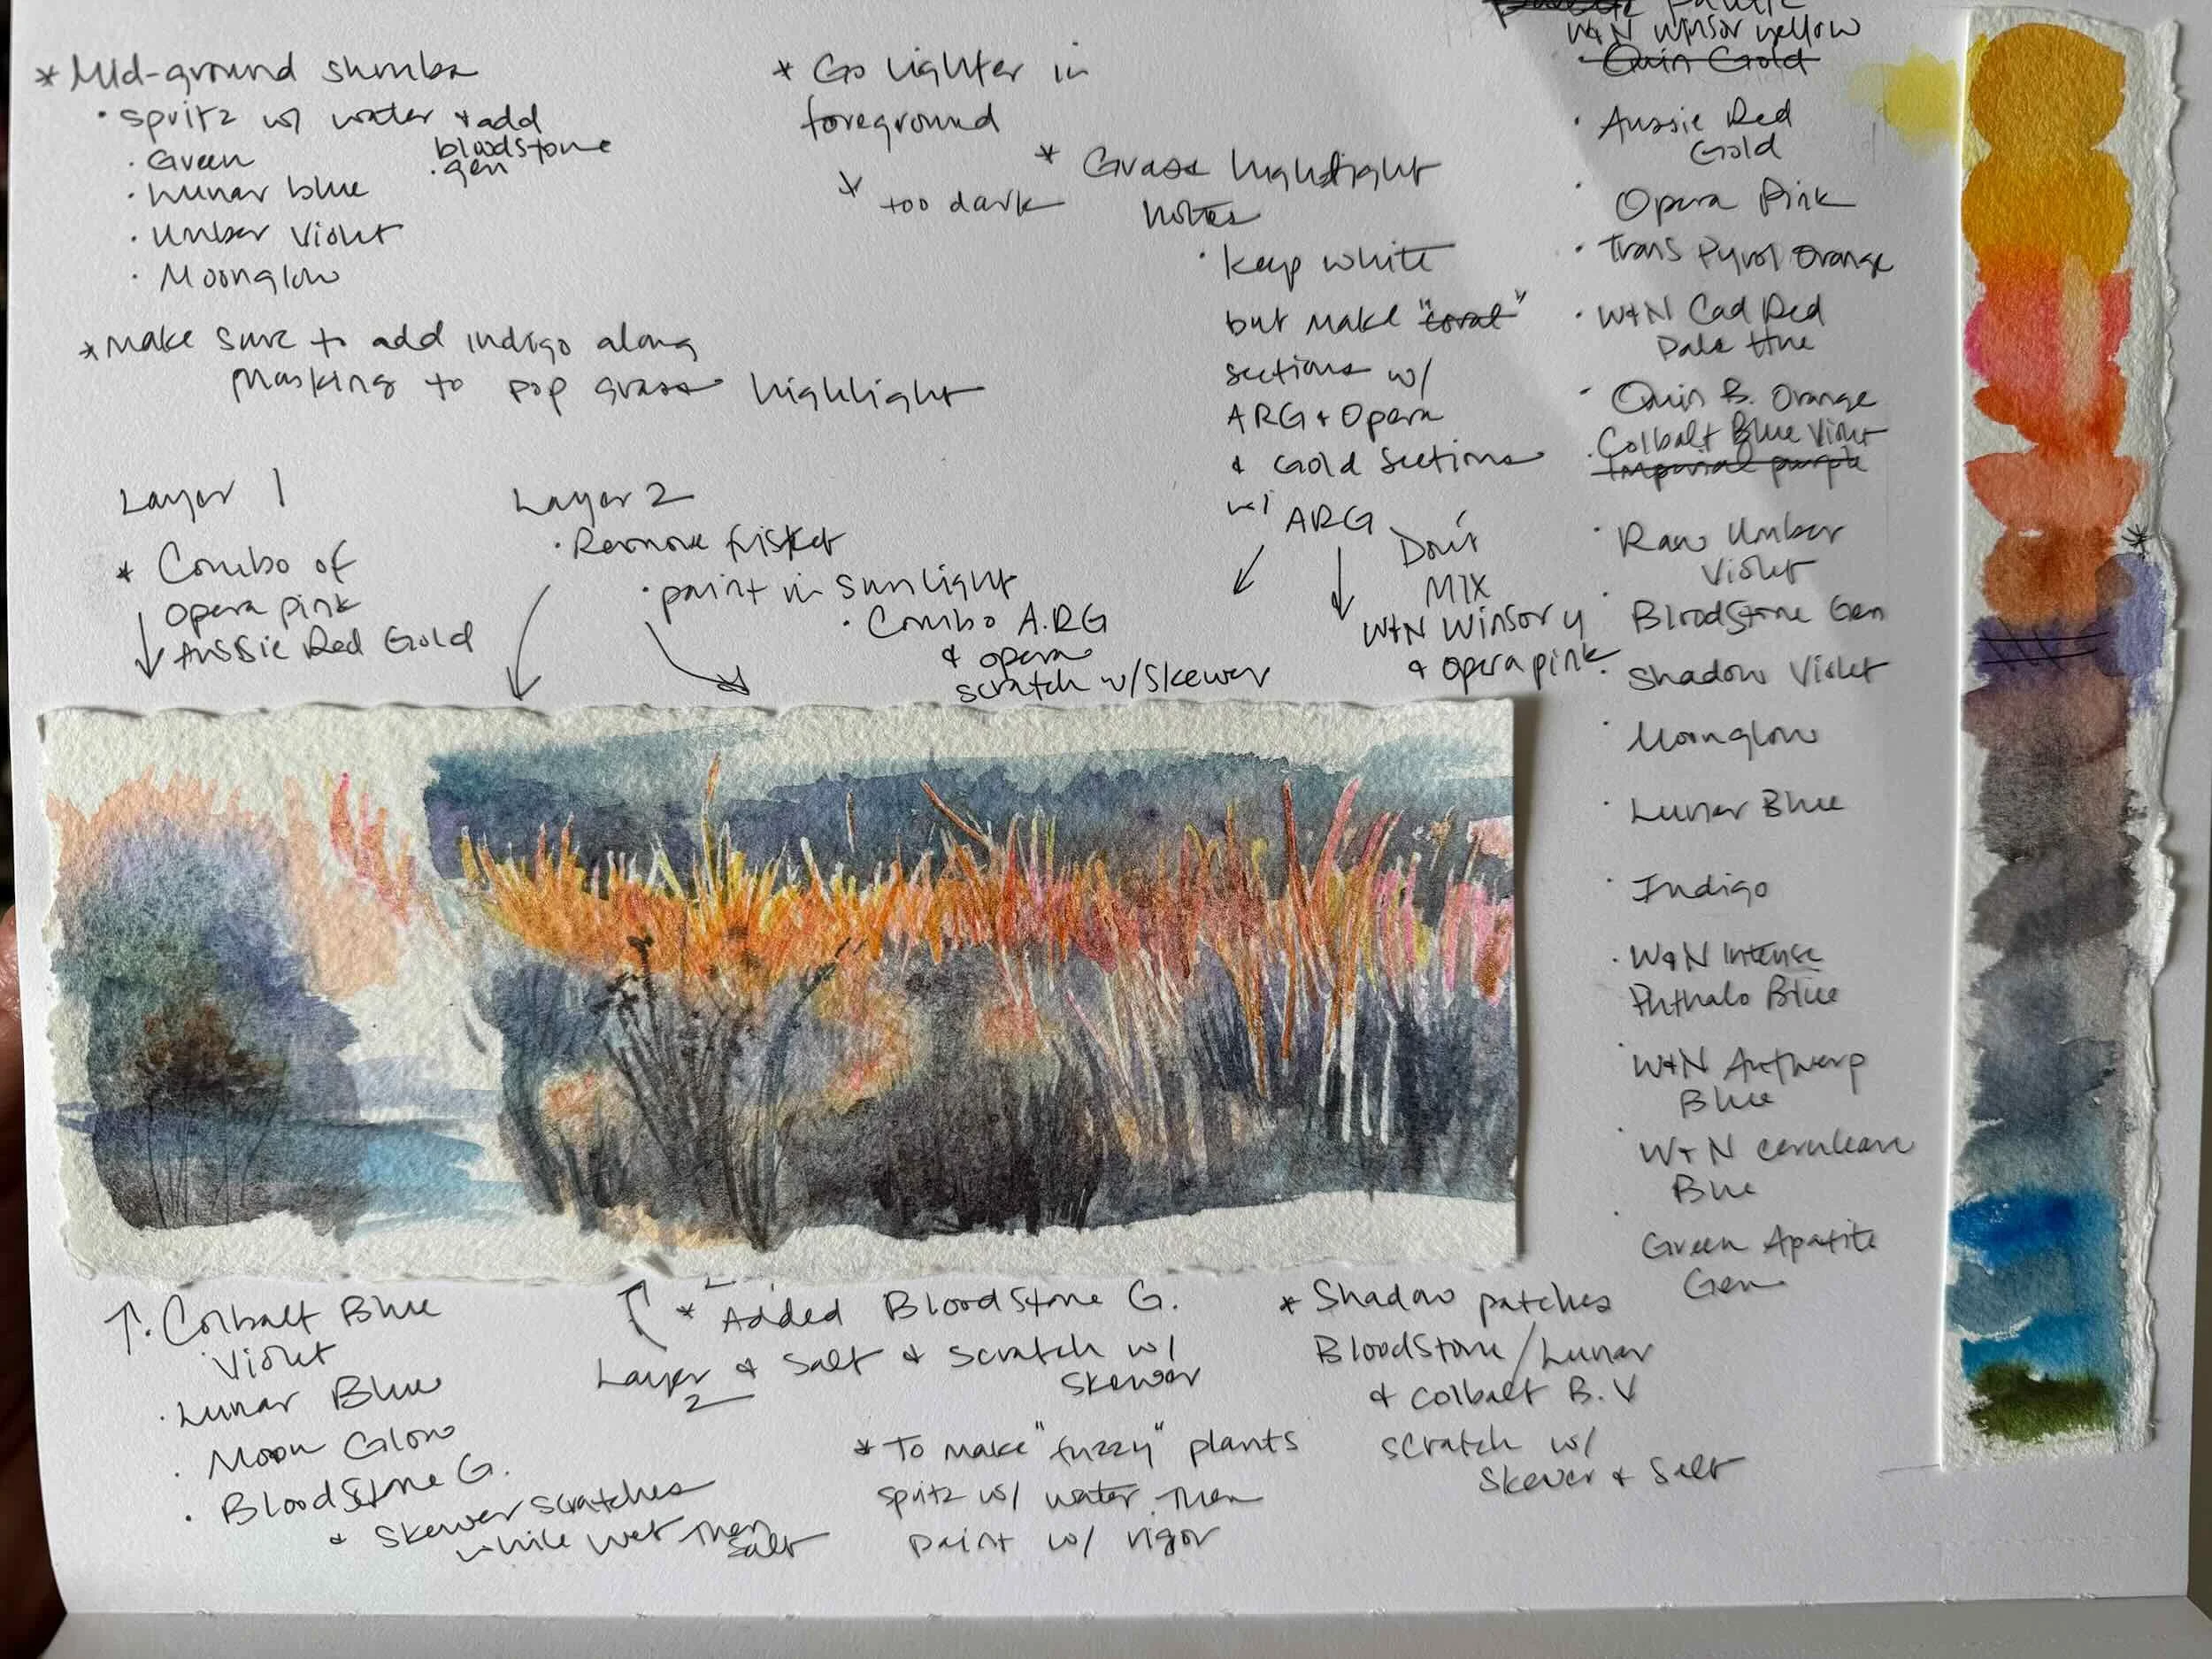 * Mid-ground shrubs
· spritz w/ water + add
bloodstone
· gen
· Green
· Lunar blue
· Umber Violet
· Moonglow
* Make sure to add indigo along
masking to pop grass highlight
* Go lighter in
foreground
* too dark
* Grass highlight
notes
· Keep white
but make "coral"
sections w/
ARG + Opera
& Gold Sections
w/ ARG
Don't
Mix
W+N Winsor y
& opera pink
Layer 1
* Combo of
Opera pink
Aussie Red Gold
Layer 2
· Remove frisket
· paint in sunlight
· Combo A.RG
& opera
scratch w/skewer
Palette
W+N Winsor yellow
· Quin Gold
· Aussie Red
Gold
· Opera Pink
· Trans Pyrol Orange
· W+N Cad Red
Pale Hue
· Quin B. Orange
· Colbalt Blue Violet
Imperial purple
· Raw Umber
Violet
· BloodStone Gen
· Shadow Violet
· Moonglow
· Lunar Blue
· Indigo
· W+N Intense
Phthalo Blue
· W+N Antwerp
Blue
· W+N cerulean
Blue
· Green Apatite
Gen
· Colbalt Blue
Violet
· Lunar Blue
· Moon Glow
· BloodStone G.
& Skewer scratches
while wet then
salt
* Added BloodStone G.
Layer & Salt & Scratch w/
2 Skewer
* To make "fuzzy" plants
spritz w/ water. Then
paint w/ vigor
* Shadow patches
BloodStone/Lunar
& Colbalt B. V
scratch w/
Skewer & Salt